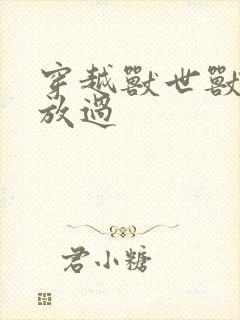 穿越獸世獸
放過
君小糖